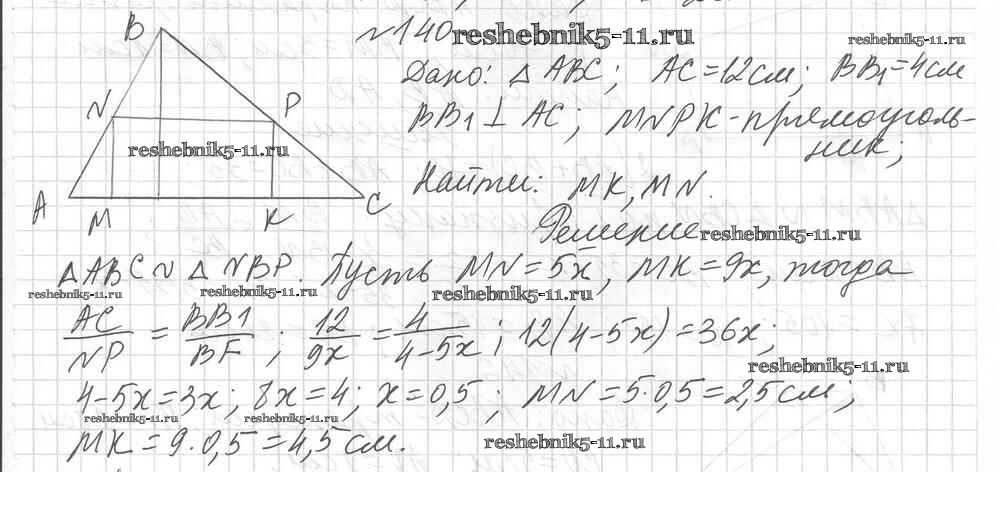 №140 reshebnik5-11.ru
reshebnik5-11.ru
B
Дано: △ABC; AC=12см; BB₁=4см
N P
BB1 ⊥ AC; MNPK - прямоуголь-
ник;
reshebnik5-11.ru
Найти: MK, MN.
A M K C
Решение reshebnik5-11.ru
△ABC ~ △NBP. Пусть MN=5x, MK=9x, тогда
reshebnik5-11.ru reshebnik5-11.ru reshebnik5-11.ru
AC/NP = BB1/BF; 12/9x = 4/4-5x; 12(4-5x)=36x;
reshebnik5-11.ru
4-5x=3x; 8x=4; x=0,5; MN=5·0,5=2,5см;
reshebnik5-11.ru reshebnik5-11.ru
MK=9·0,5=4,5см.
reshebnik5-11.ru